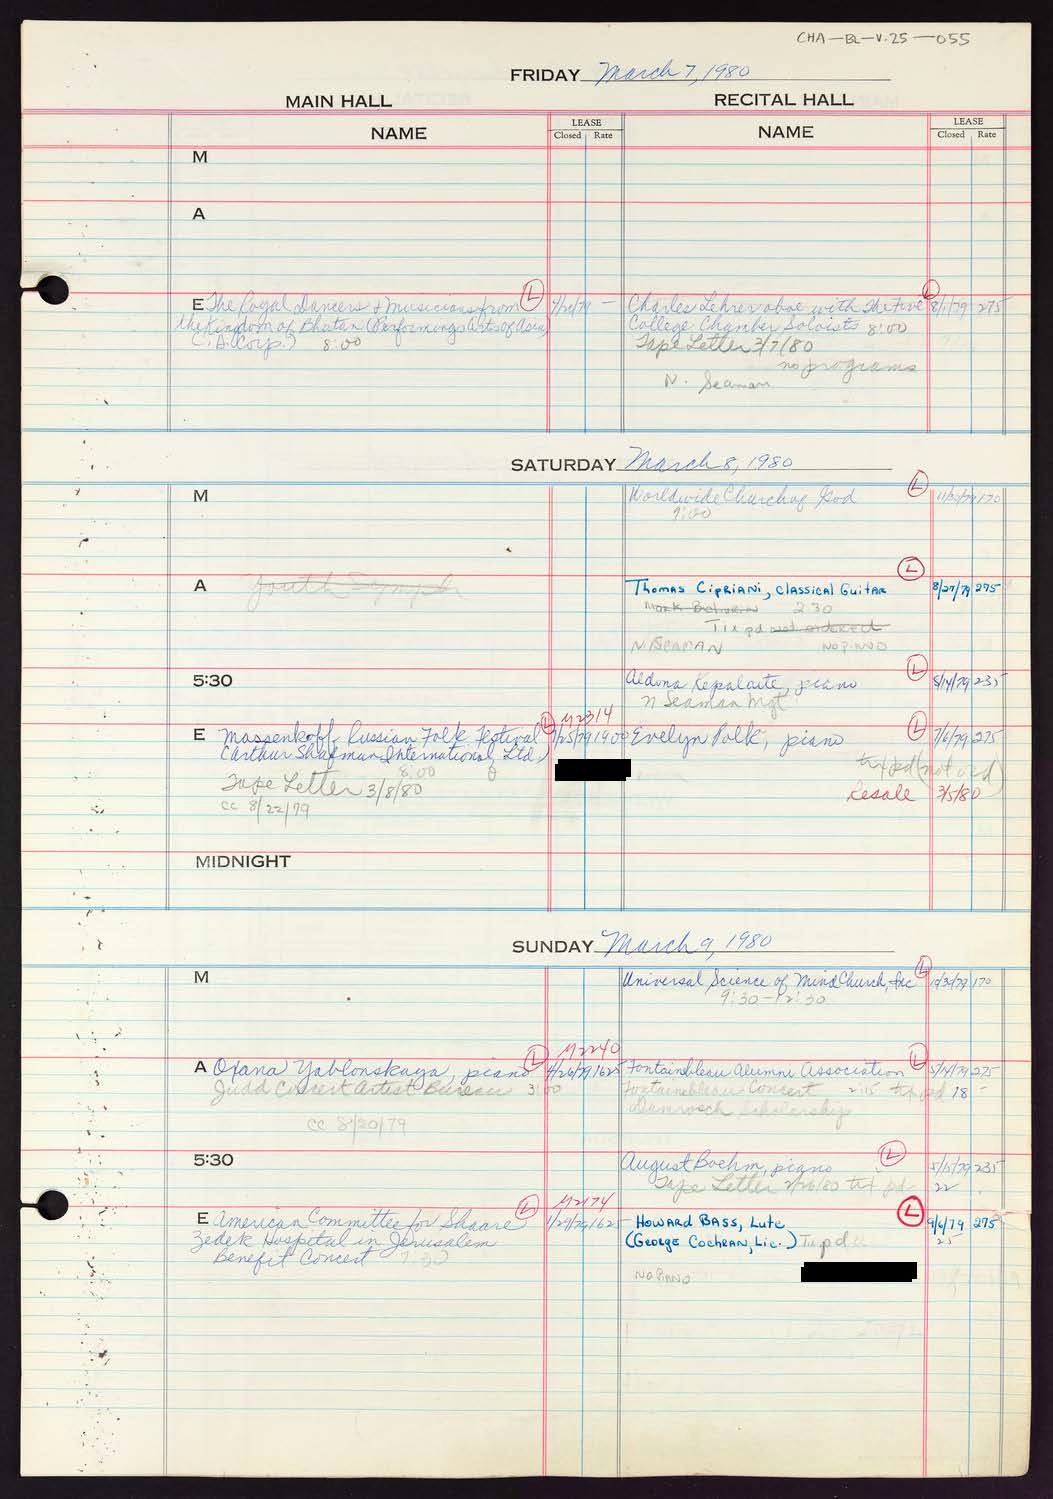 CHA-BL-V.25-055
FRIDAY March 7, 1980
MAIN HALL RECITAL HALL
NAME LEASE Closed Rate NAME LEASE Closed Rate
M
A
E The Royal Dancers & Musicians from (L) —
the Kingdom of Bhutan (Performing Arts of Asia
8:00
Charles Lehrer oboe with The Five (L) 8/1/79 275
College Chamber Soloists 8:00
Tape Letter 3/7/80
no programs
N. Seaman
SATURDAY March 8, 1980
M
Worldwide Church of God (L) 170
9:00
A Youth Symph
Thomas Cipriani, Classical Guitar (L) 8/27/79 275
2:30
Tix pd not ordered
N SEAMAN NO PIANO
5:30
Aldona Kepalaite, piano (L) 5/14/79 235
N Seaman Mgt
E Massenkoff Russian Folk Festival (L) M2314 1900
(Arthur Shafman International, Ltd.)
8:00
Tape Letter 3/8/80
cc 8/22/79
Evelyn Polk, piano (L) 7/6/79 275
tix pd (not ord)
Resale 3/5/80
MIDNIGHT
SUNDAY March 9, 1980
M
Universal Science of Mind Church, Inc (L) 170
9:30-12:30
A Oxana Yablonskaya, piano (L) M2240 1625
Judd Concert Artist Bureau 3:00
cc 8/20/79
Fontainbleau Alumni Association (L) 5/14/79 275
Fontainbleau Concert 2:15 tix pd 18
Damrosch Scholarship
5:30
August Boehm, piano (L) 5/15/79 235
Tape Letter 2/26/80 tix pd 22
E American Committee for Shaare (L) M2174 1625
Zedek Hospital in Jerusalem
Benefit Concert 7:30
HOWARD BASS, Lute (L) 9/6/79 275
(GEORGE COCHRAN, Lic.) Tix pd 25
NO PIANO